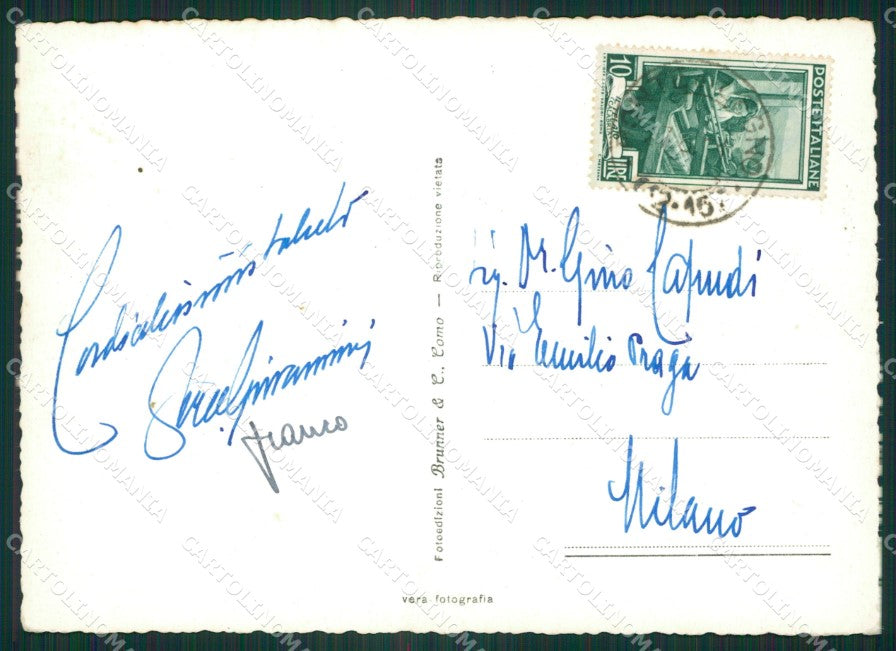 Cordialissimi saluti
franco
Fotoedizioni Brunner & C., Como — Riproduzione vietata
vera fotografia
10
LIRE
POSTE ITALIANE
Dr. Gino
Via Emilio Praga
Milano
CARTOLINOMANIA